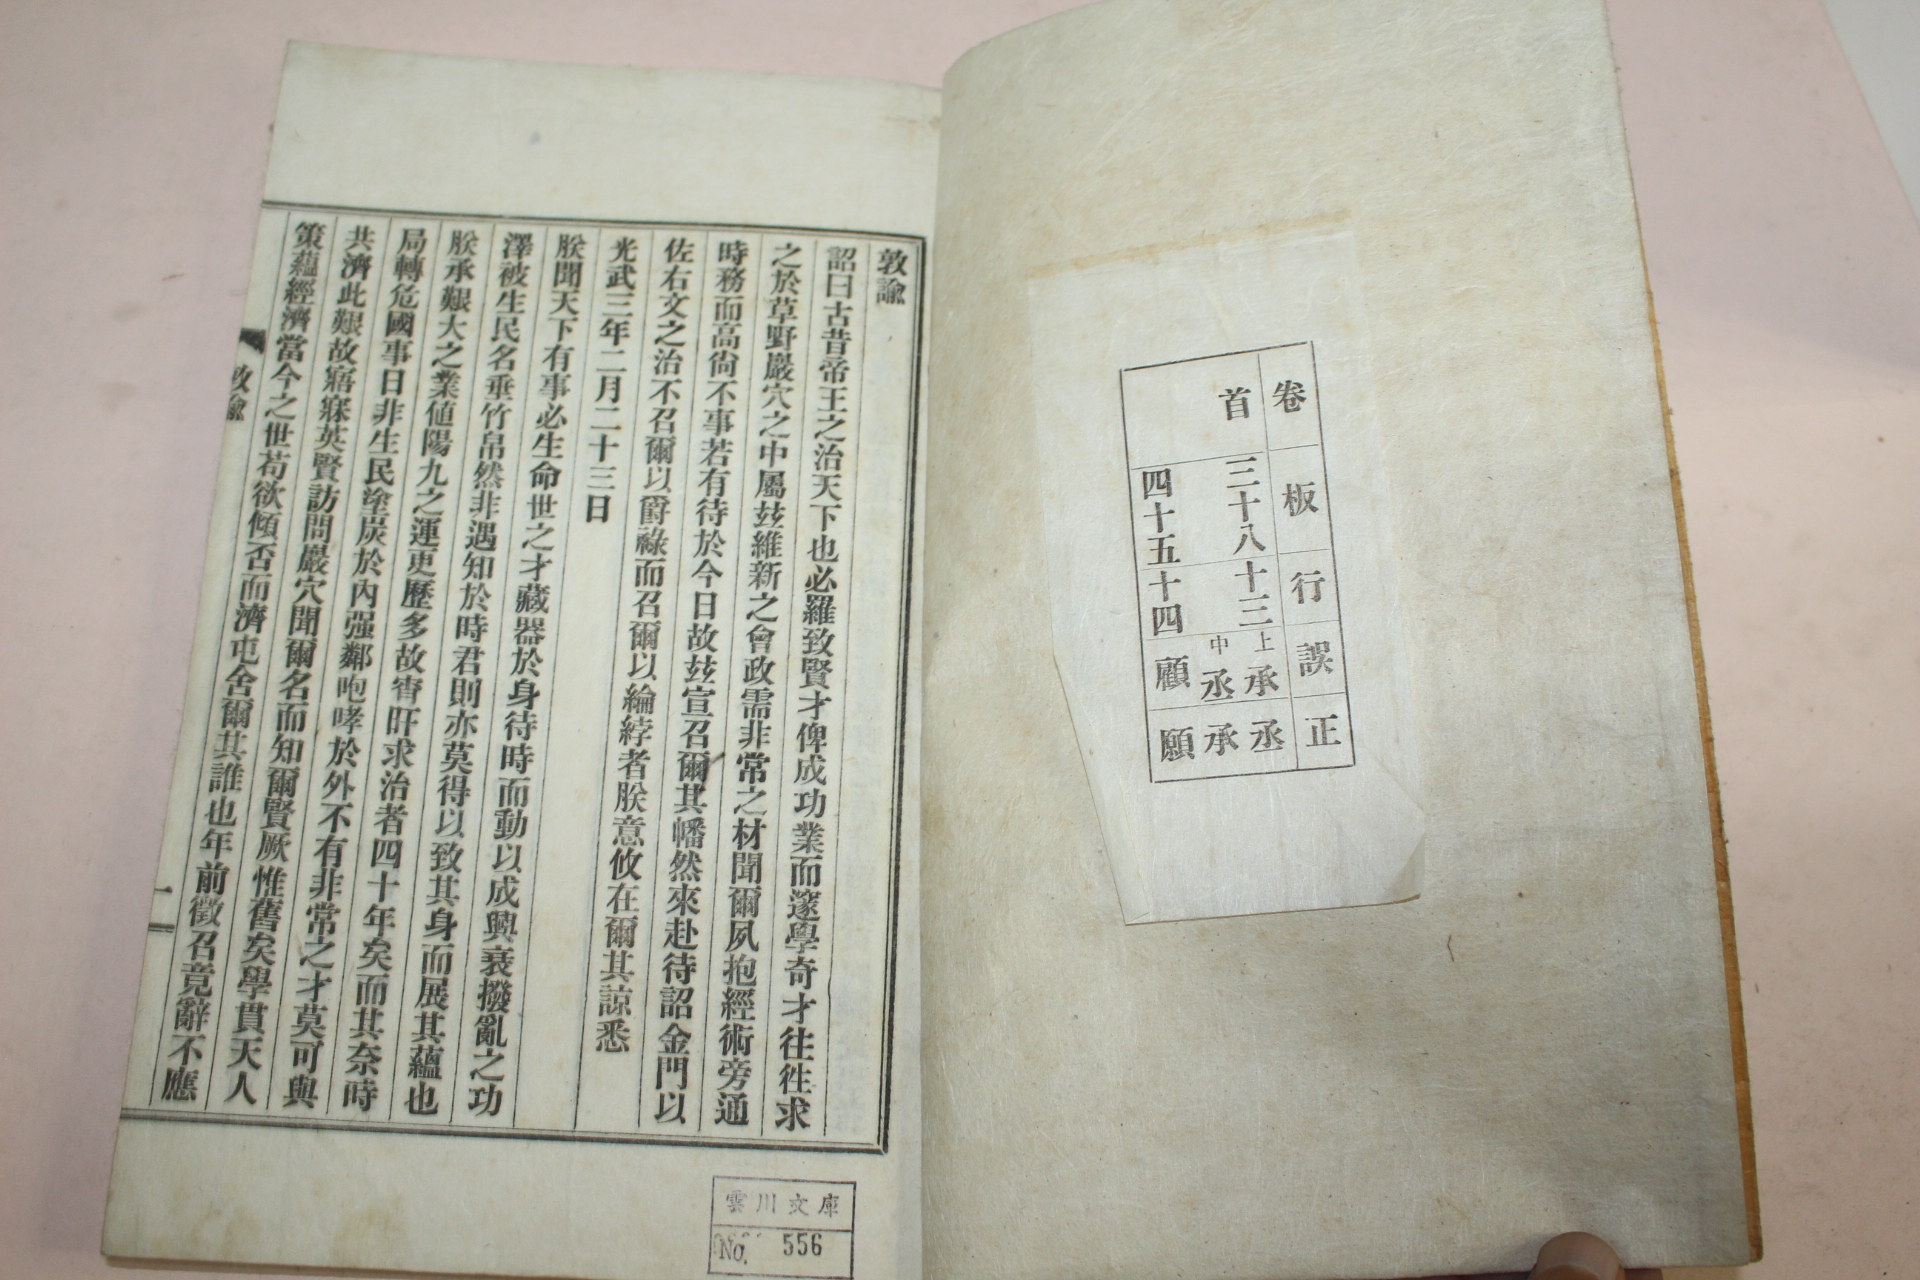 卷 板 行 誤 正
首 三十八 十三 上承 丞
中丞 承
四十五 十四 顧 願
敦諭
詔曰古昔帝王之治天下也必羅致賢才俾成功業而邃學奇才往往求
之於草野巖穴之中屬玆維新之會政需非常之材聞爾夙抱經術旁通
時務而高尙不事若有待於今日故玆宣召爾其幡然來赴待詔金門以
佐右文之治不召爾以爵祿而召爾以綸綍者朕意攸在爾其諒悉
光武三年二月二十三日
朕聞天下有事必生命世之才藏器於身待時而動以成興衰撥亂之功
澤被生民名垂竹帛然非遇知於時君則亦莫得以致其身而展其蘊也
朕承艱大之業値陽九之運更歷多故宵旰求治者四十年矣而其奈時
局轉危國事日非生民塗炭於內强鄰咆哮於外不有非常之才莫可與
共濟此艱故寤寐英賢訪問巖穴聞爾名而知爾賢厥惟舊矣學貫天人
策蘊經濟當今之世苟欲傾否而濟屯舍爾其誰也年前徵召竟辭不應
敦諭
一
雲川文庫
No. 556